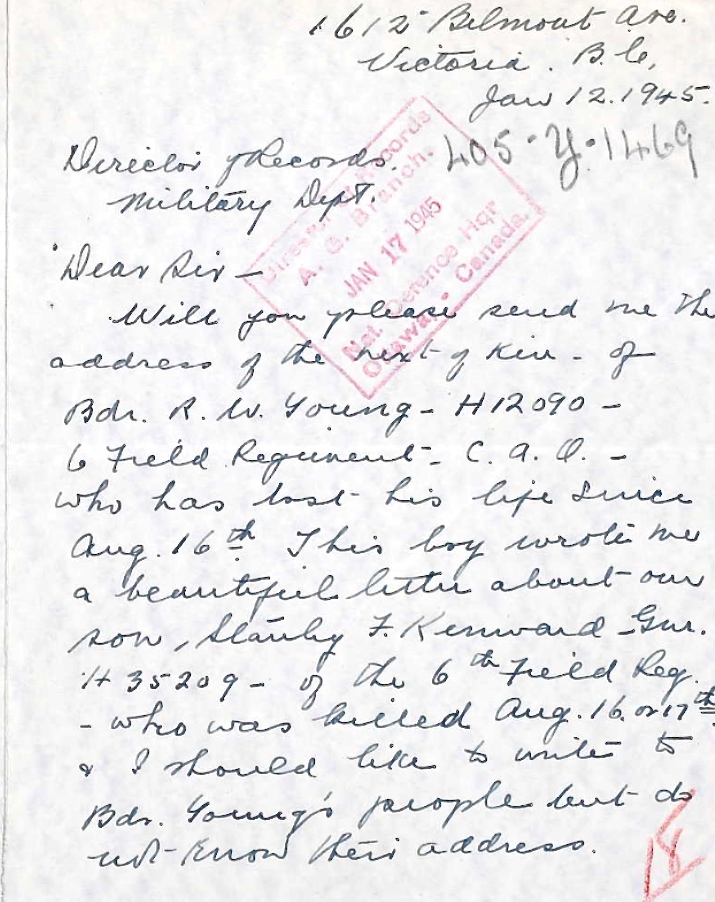 1612 Belmont Ave.
Victoria. B.C,
Jan 12. 1945.
405-Y-1469
Director of Records.
Military Dept.
Records
A. G. Branch.
JAN 17 1945
Nat. Defence Hqr
Ottawa - Canada.
Dear Sir -
Will you please send me the
address of the next of Kin - of
Bdr. R. W. Young - H12090 -
6 Field Regiment - C. A. O. -
who has lost his life since
Aug. 16th. This boy wrote me
a beautiful letter about our
son, Stanley F. Kenward - Gnr.
H 35209 - of the 6th Field Reg.
- who was killed Aug. 16. or 17th
& I should like to write to
Bdr. Young's people but do
not know their address.